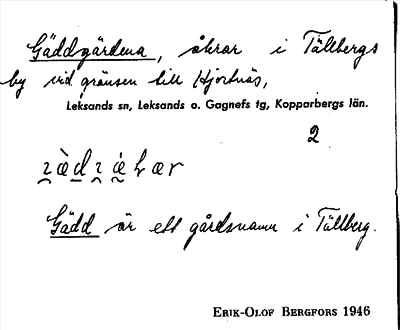 Gäddgärdena, åkrar i Tällbergs
by vid gränsen till Hjortnäs,
Leksands sn, Leksands o. Gagnefs tg, Kopparbergs län.
2
Gädd är ett gårdsnamn i Tällberg.
ERIK-OLOF BERGFORS 1946